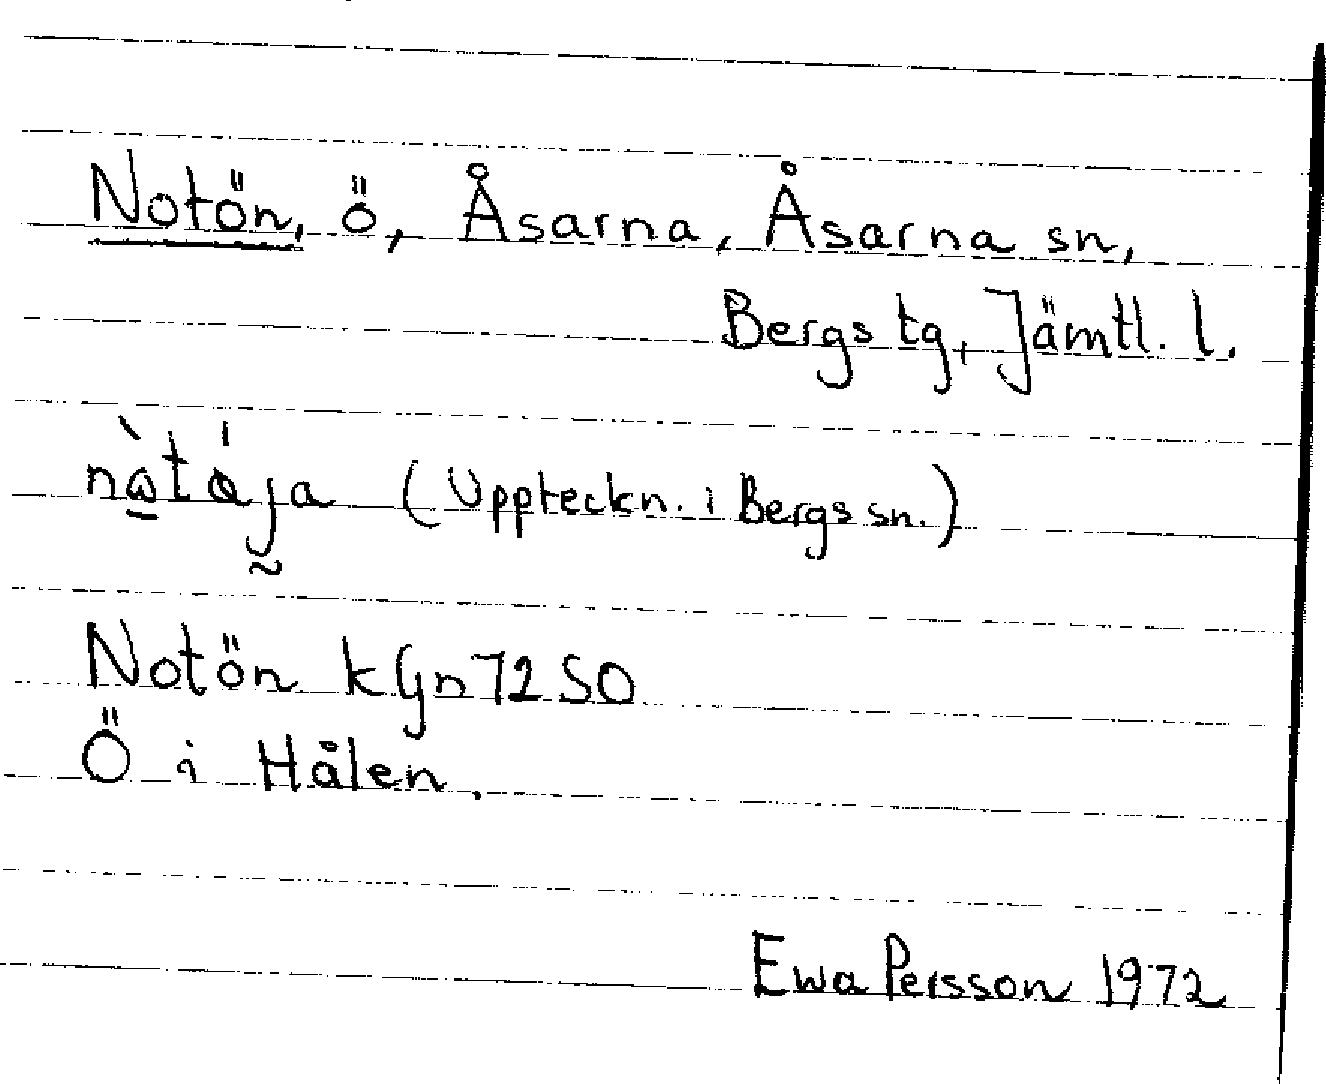 Notön, ö, Åsarna, Åsarna sn,
Bergs tg, Jämtl. l.
(Uppteckn. i Bergs sn.)
Notön kGn 72 SO
Ö i Hålen.
Ewa Persson 1972